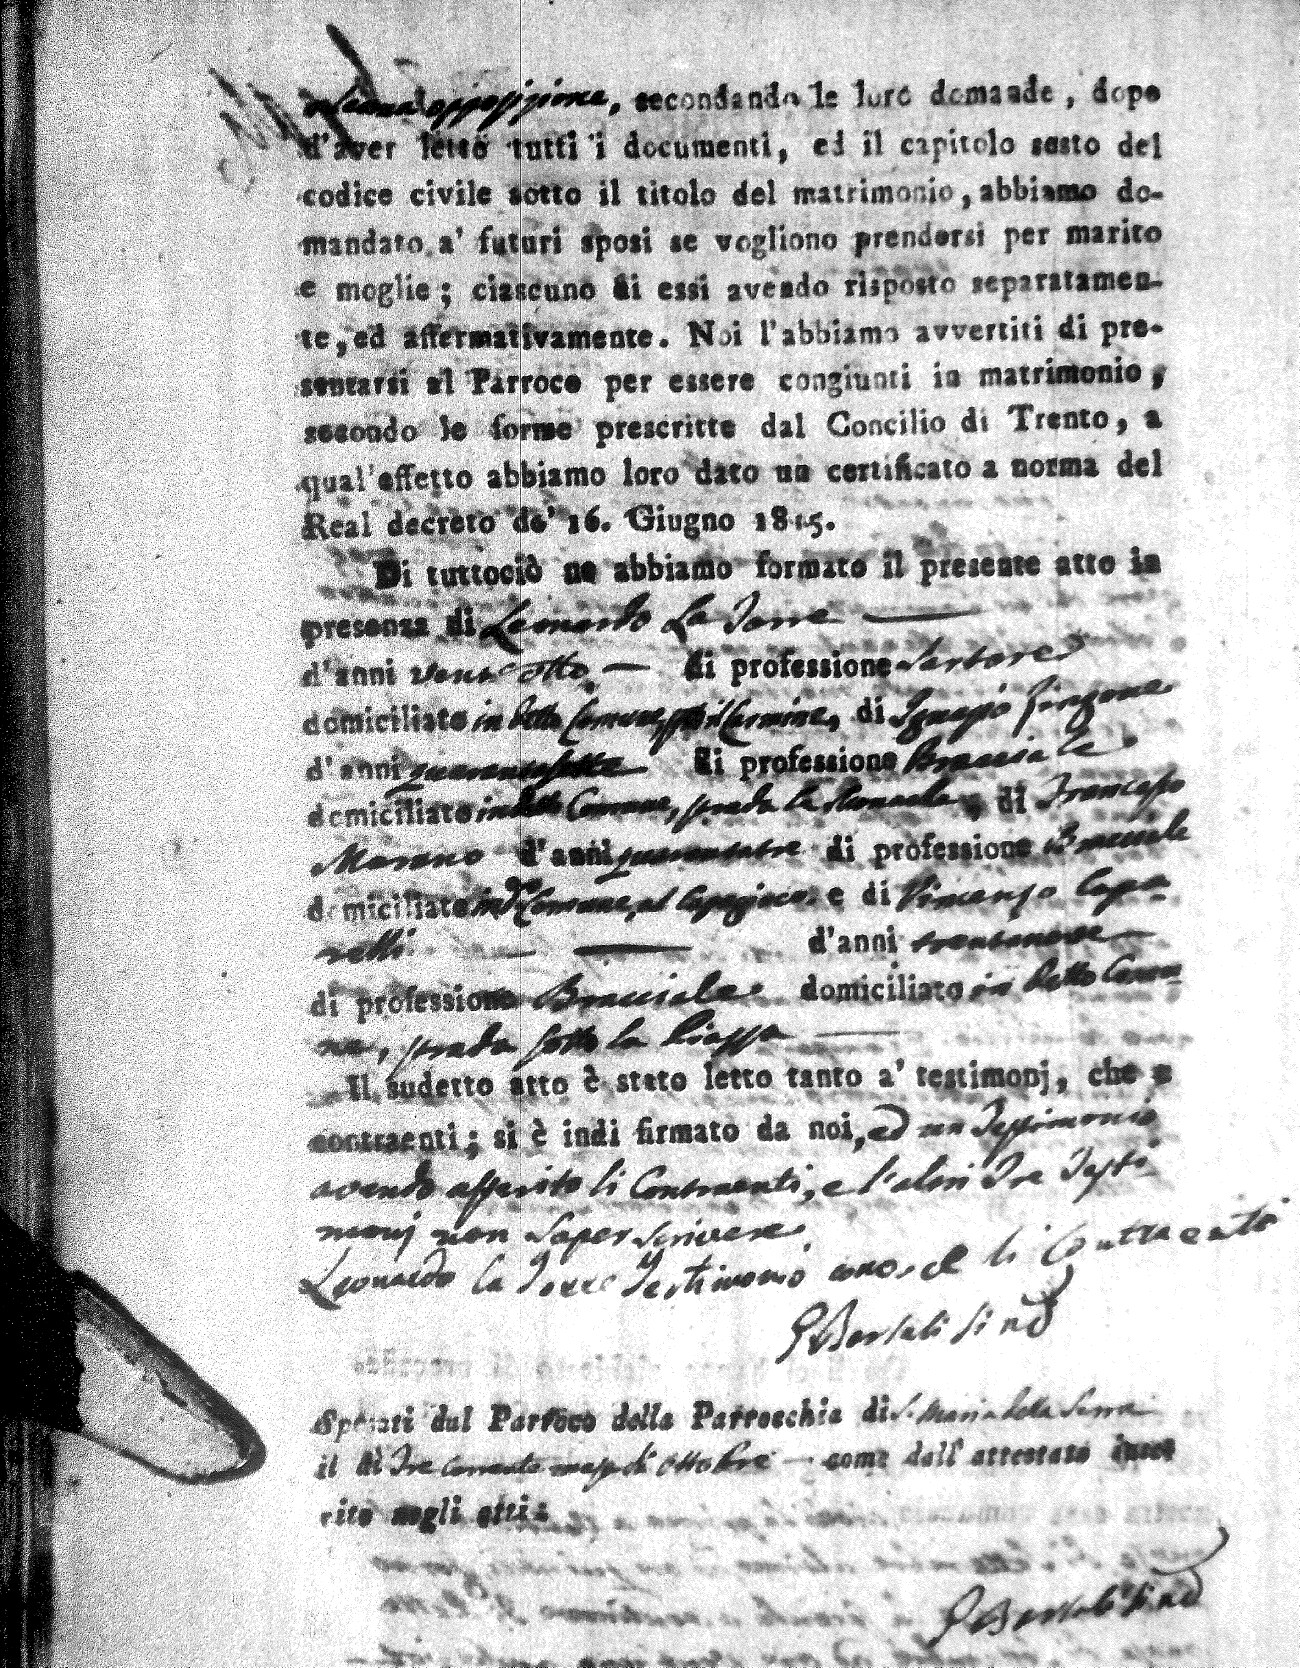 alcuna opposizione, secondando le loro demande, dopo
d'aver letto tutti i documenti, ed il capitolo sesto del
codice civile sotto il titolo del matrimonio, abbiamo do-
mandato a' futuri sposi se vogliono prendersi per marito
e moglie; ciascuno di essi avendo risposto separatamen-
te, ed affermativamente. Noi l'abbiamo avvertiti di pre-
sentarsi al Parroco per essere congiunti in matrimonio,
secondo le forme prescritte dal Concilio di Trento, a
qual'effetto abbiamo loro dato un certificato a norma del
Real decreto de' 16. Giugno 1815.
Di tuttociò ne abbiamo formato il presente atto in
presenza di Leonardo La Torre
d'anni vent'otto di professione Sartore
domiciliato in detto Comune, il Carmine, di Ignazio Zingone
d'anni quarantasette di professione Bracciale
domiciliato in detto Comune, strada la, di Francesco
Marano d'anni quarantatre di professione Bracciale
domiciliato in do Comune, al e di Vincenzo Capo-
relli d'anni trentanove
di professione Bracciale domiciliato in detto Comu-
ne, strada sotto la Piazza
Il sudetto atto è stato letto tanto a' testimonj, che a
contraenti; si è indi firmato da noi, ed un Testimonio
avendo asserito li Contraenti, e l'altri Tre Testi-
monj non saper scrivere
Leonardo la Torre Testimonio conosce li Contraenti
Sind
Sposati dal Parroco della Parrocchia di S. Maria della Serra
il dì Tre Corrente mese di Ottobre come dall'attestato inse
rito negli atti:
Sind